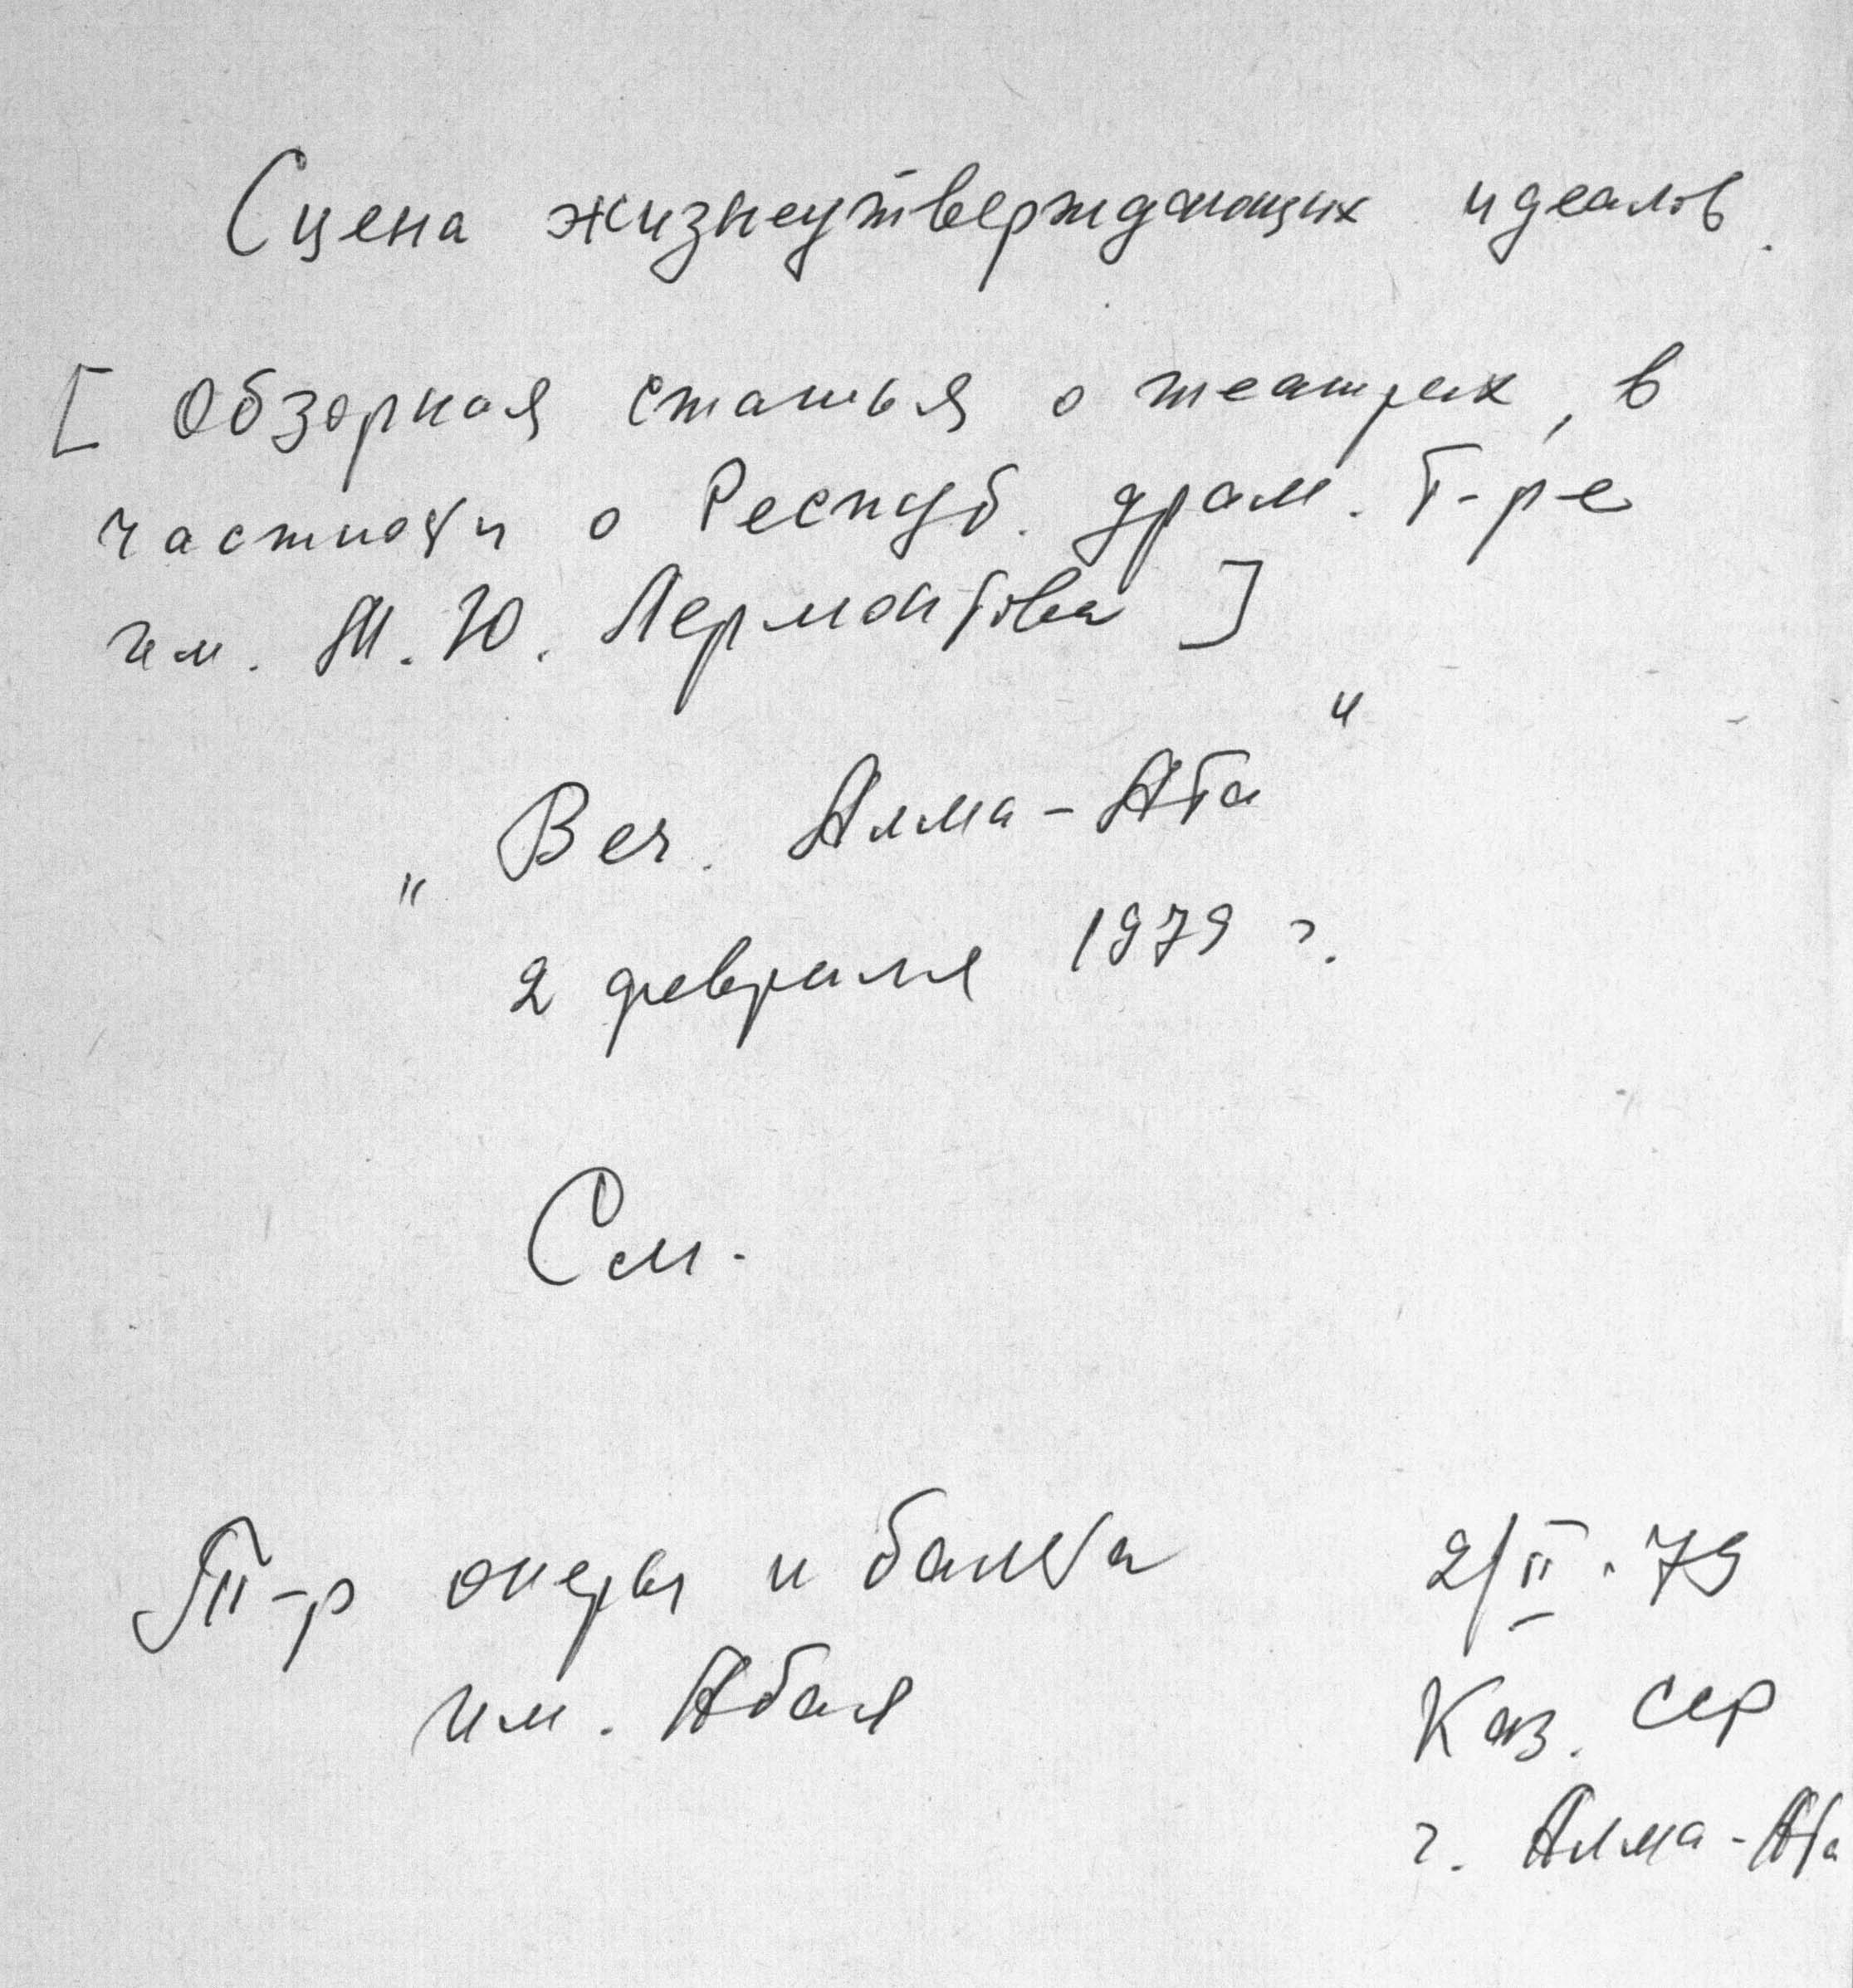 Сцена жизнеутверждающих идеалов.
[ Обзорная статья о театрах, в
частности о Респуб. драм. т-ре
им. М. Ю. Лермонтова ]
„ Веч. Алма-Ата "
2 февраля 1979 г.
См.
Т-р оперы и балета
им. Абая
2/II.79
Каз. ССР
г. Алма-Ата